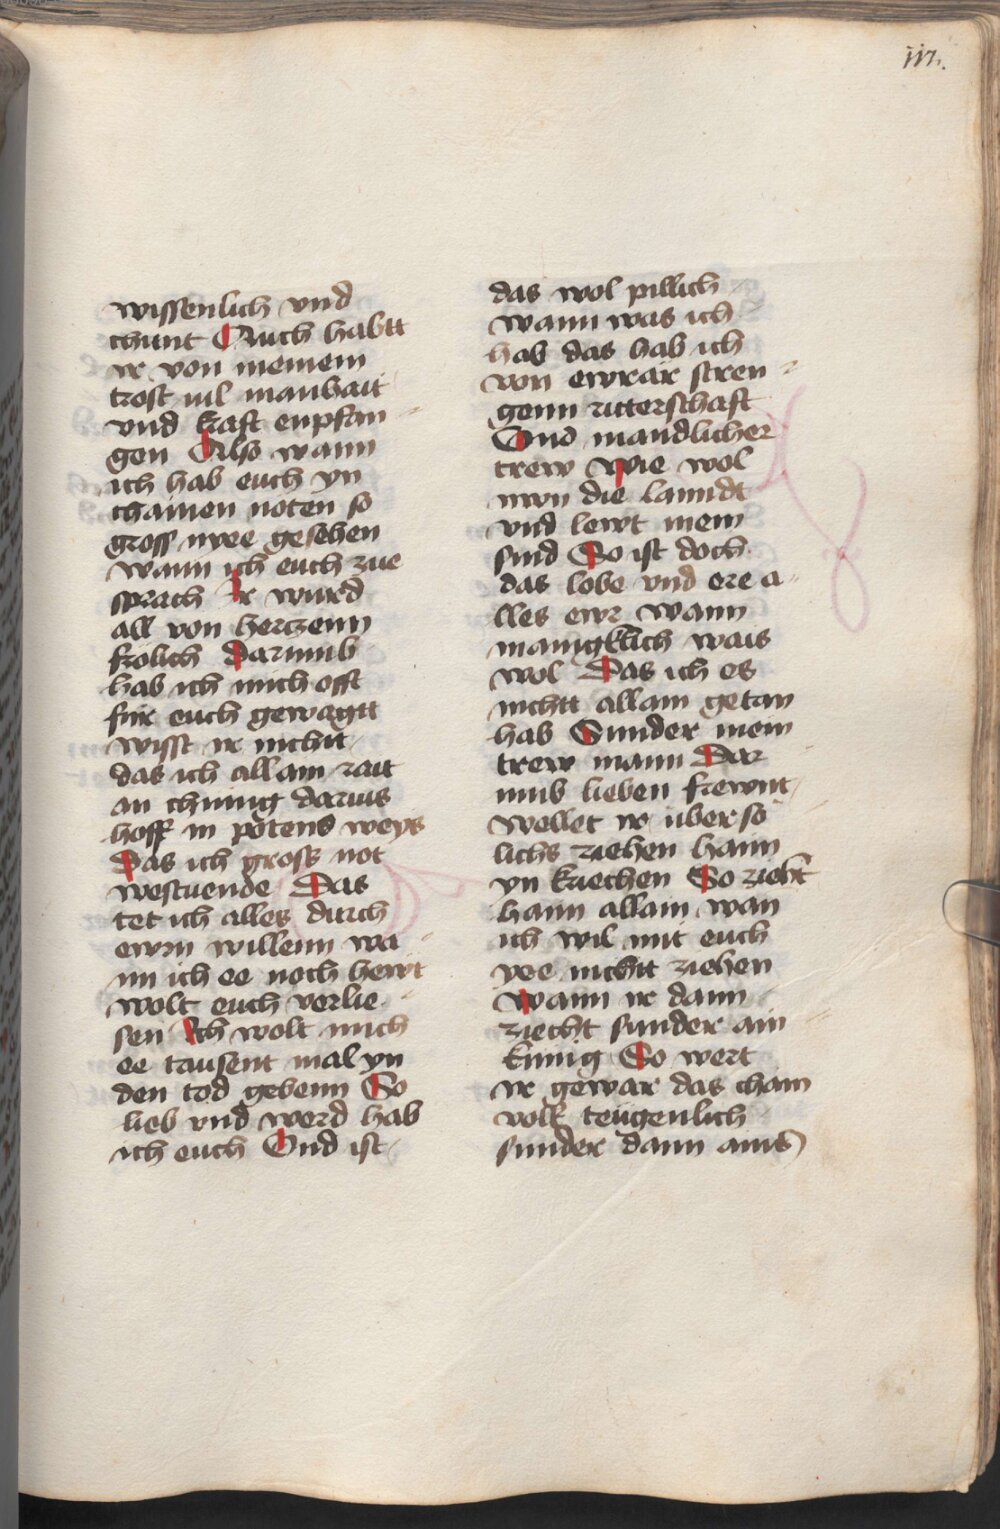 117.
wissenlich vnd
chunt Auch habtt
ir von meinem
trost vil manhait
vnd kraft enpfan
gen Also wann
ich hab euch yn
chainen noten so
gross nyee gesehen
wann ich euch zue
sprach Ir wurd
all von hertzenn
frolich Darumb
hab ich mich offt
fur euch gewagtt
wisst ir nichtt
das ich allain rait
an chunig darius
hoff in potens weys
Das ich gross not
westuende Das
tet ich alles durch
ewrn willenn wa
nn ich ee noch hewt
wolt euch verlie
sen Ich wolt mich
ee tausent mal yn
den tod gebenn So
lieb vnd werd hab
ich euch Vnd ist
das wol pillich
wann was ich
hab das hab ich
von ewrar stren
genn ritterschaft
Vnd mandlicher
trew wie wol
nwn die lanndt
vnd lewt mein
sind So ist doch
das lobe vnd ere a
lles ewr wann
manigklich wais
wol Das ich es
nichtt allain getan
hab Sunder mein
trew mann Dar
umb lieben frewnt
wellet ir uber so
lichs ziehen hann
yn kriechen So ziecht
hann allain wan
ich wil mit euch
yee nichtt ziehen
wann ir dann
ziecht sunder ain
kunig So wert
ir gewar das chain
volk teugenlich
sunder dann ains